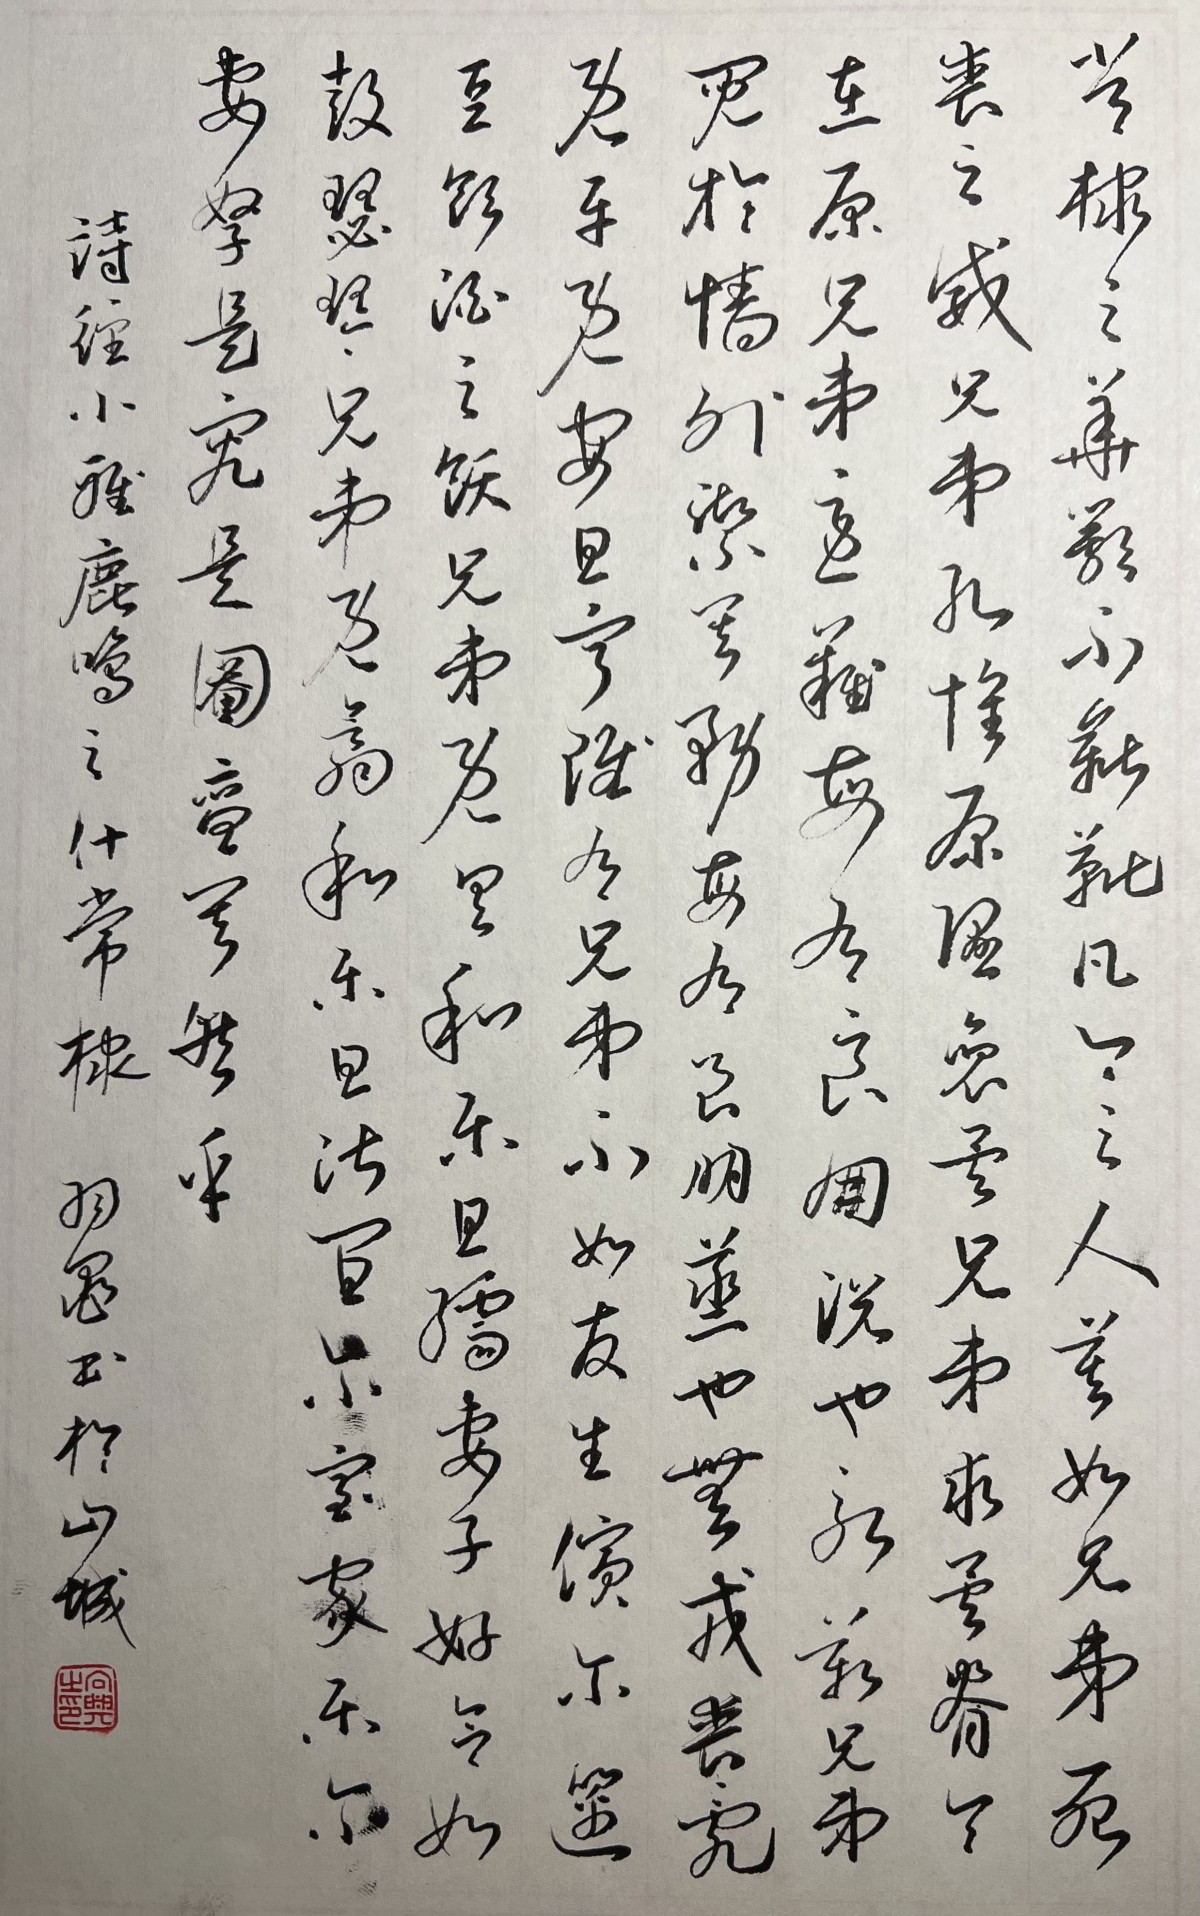 常棣之華鄂不韡韡凡今之人莫如兄弟死
喪之威兄弟孔懷原隰裒矣兄弟求矣脊令
在原兄弟急難每有良朋況也永歎兄弟
鬩於牆外禦其務每有良朋蒸也無戎喪亂
既平既安且寧雖有兄弟不如友生儐尔籩
豆飲酒之飫兄弟既具和樂且孺妻子好合如
鼓瑟琴兄弟既翕和樂且湛宜尔室家樂尔
妻孥是究是圖亶其然乎
詩經小雅鹿鳴之什常棣 羽墨书於山城